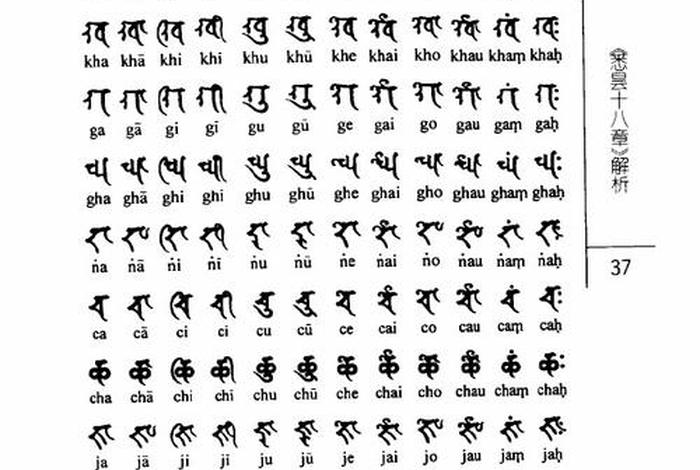 𑖏 𑖏𑖯 𑖏𑖰 𑖏𑖱 𑖏𑖲 𑖏𑖳 𑖏𑖸 𑖏𑖹 𑖏𑖺 𑖏𑖻 𑖏𑖽 𑖏𑖾
kha khā khi khi khu khū khe khai kho khau khaṃ khaḥ
𑖐 𑖐𑖯 𑖐𑖰 𑖐𑖱 𑖐𑖲 𑖐𑖳 𑖐𑖸 𑖐𑖹 𑖐𑖺 𑖐𑖻 𑖐𑖽 𑖐𑖾
ga gā gi gī gu gū ge gai go gau gaṃ gaḥ
𑖑 𑖑𑖯 𑖑𑖰 𑖑𑖱 𑖑𑖲 𑖑𑖳 𑖑𑖸 𑖑𑖹 𑖑𑖺 𑖑𑖻 𑖑𑖽 𑖑𑖾
gha ghā ghi ghi ghu ghū ghe ghai gho ghau ghaṃ ghaḥ
𑖒 𑖒𑖯 𑖒𑖰 𑖒𑖱 𑖒𑖲 𑖒𑖳 𑖒𑖸 𑖒𑖹 𑖒𑖺 𑖒𑖻 𑖒𑖽 𑖒𑖾
ṅa ṅā ṅi ṅī ṅu ṅū ṅe ṅai ṅo ṅau ṅaṃ ṅaḥ
𑖓 𑖓𑖯 𑖓𑖰 𑖓𑖱 𑖓𑖲 𑖓𑖳 𑖓𑖸 𑖓𑖹 𑖓𑖺 𑖓𑖻 𑖓𑖽 𑖓𑖾
ca cā ci ci cu cū ce cai co cau caṃ caḥ
𑖔 𑖔𑖯 𑖔𑖰 𑖔𑖱 𑖔𑖲 𑖔𑖳 𑖔𑖸 𑖔𑖹 𑖔𑖺 𑖔𑖻 𑖔𑖽 𑖔𑖾
cha chā chi chī chu chū che chai cho chau chaṃ chaḥ
𑖕 𑖕𑖯 𑖕𑖰 𑖕𑖱 𑖕𑖲 𑖕𑖳 𑖕𑖸 𑖕𑖹 𑖕𑖺 𑖕𑖻 𑖕𑖽 𑖕𑖾
ja jā ji jī ju jū je jai jo jau jaṃ jaḥ
《悉曇十八章》解析
37